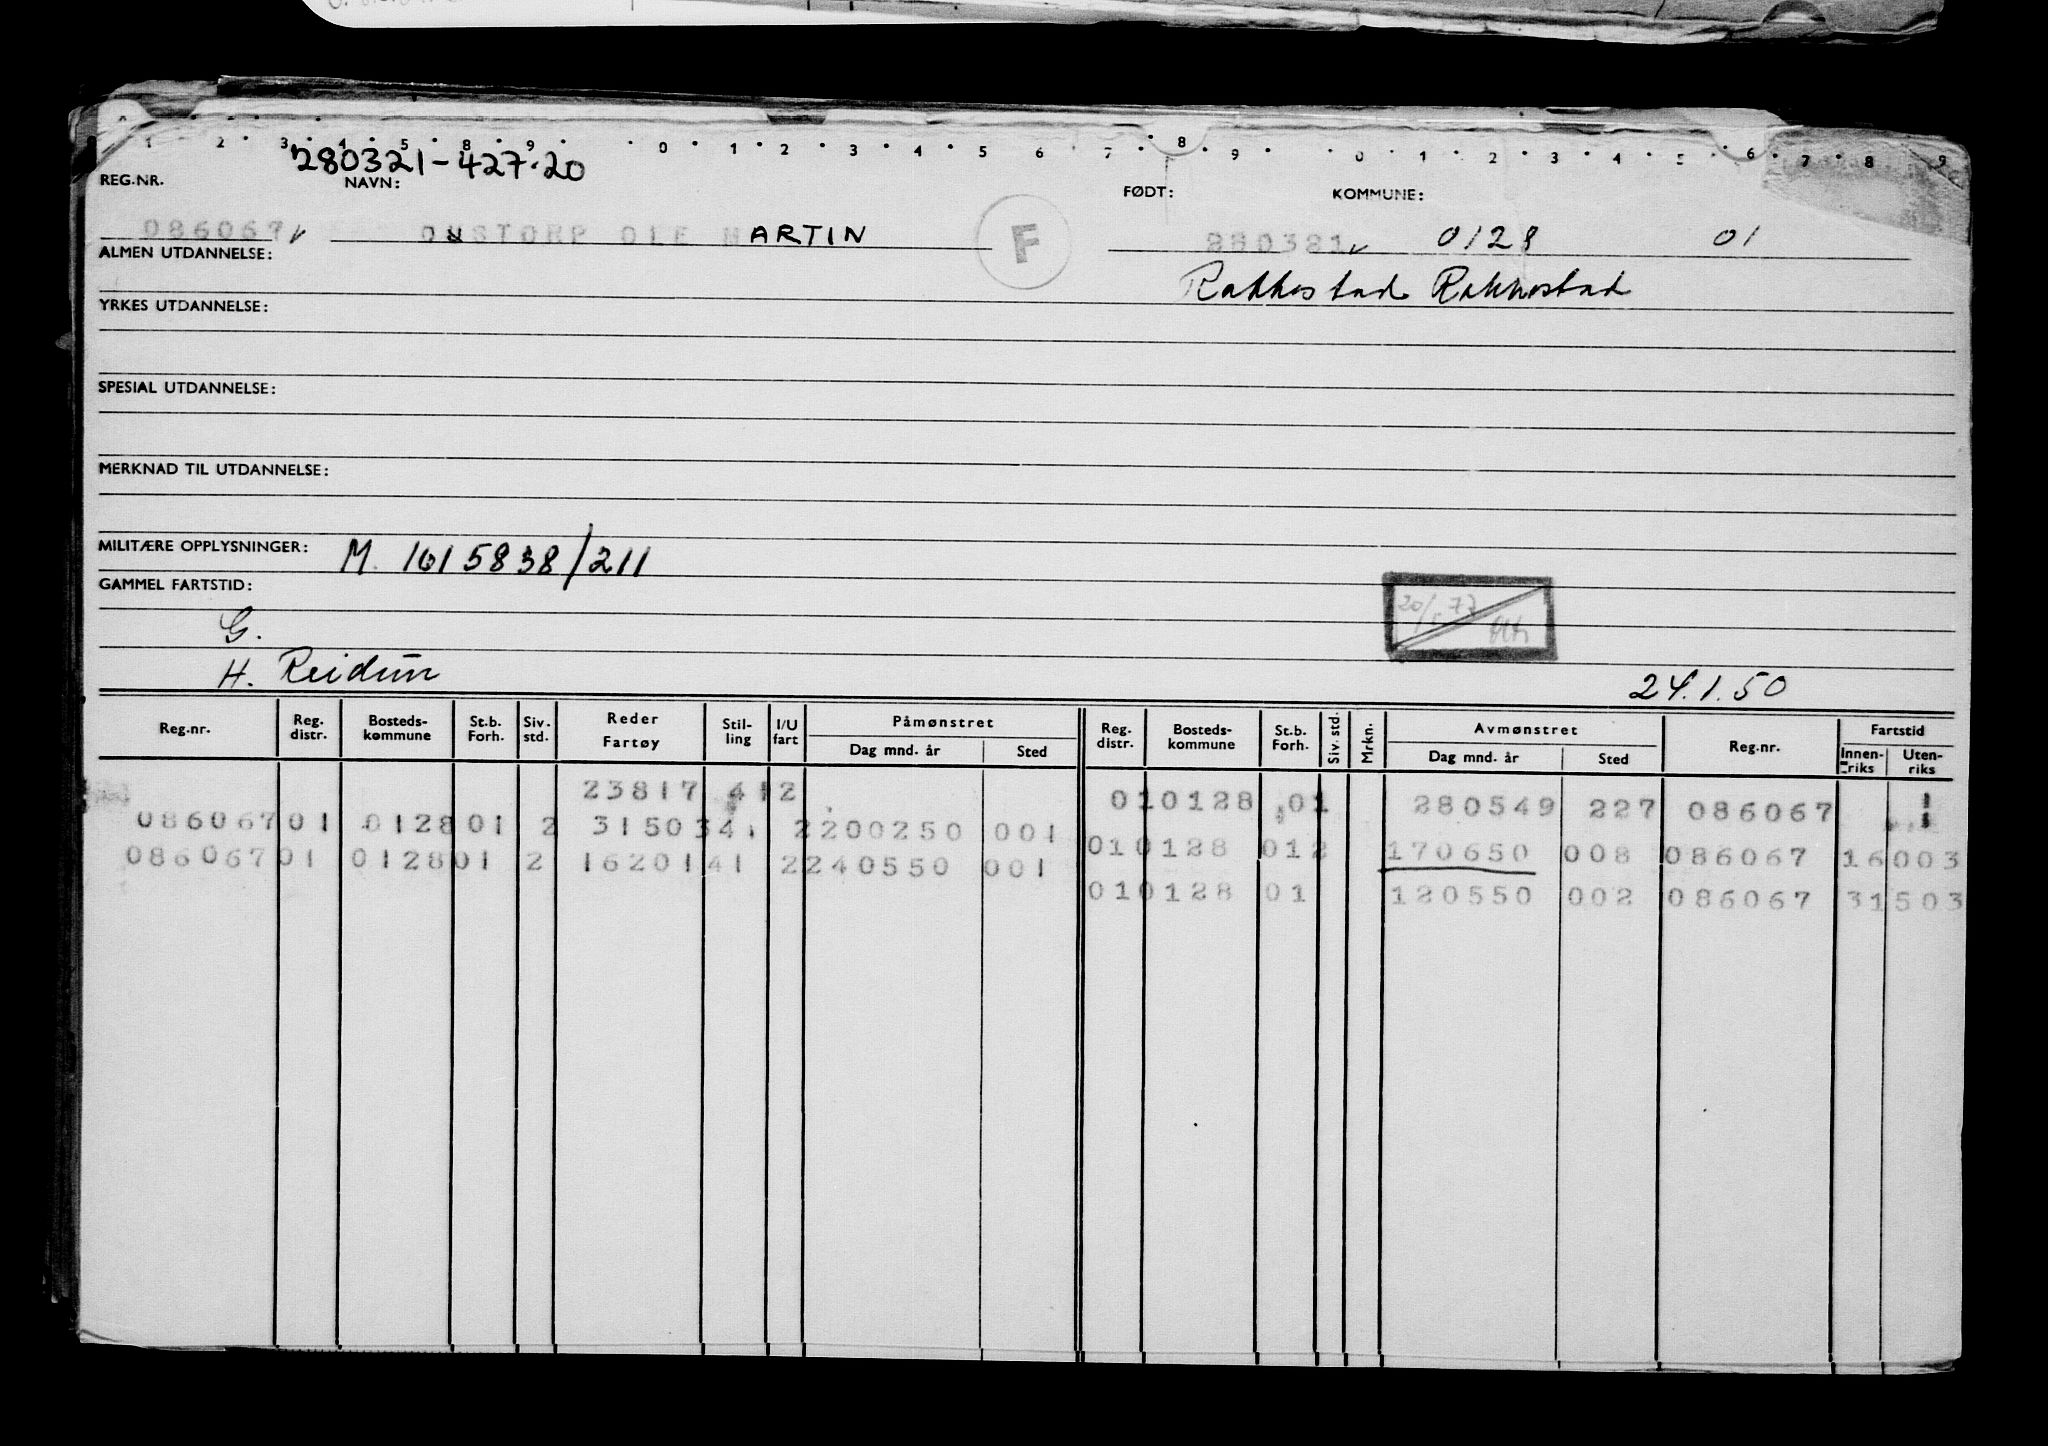 1 2 3 4 5 8 9 0 1 2 3 4 5 6 7 8 9 0 1 2 3 4 5 6 7 8 9
280321-427.20
REG.NR. NAVN: FØDT: KOMMUNE:
086067 OUSTORP OLE MARTIN F 280321 0128 01
ALMEN UTDANNELSE: Rakkestad Rakkestad
YRKES UTDANNELSE:
SPESIAL UTDANNELSE:
MERKNAD TIL UTDANNELSE:
MILITÆRE OPPLYSNINGER: M. 1615838/211
GAMMEL FARTSTID:
G.
H. Reidun 24.1.50
Reg.nr. Reg. distr. Bosteds-kommune St.b. Forh. Siv. std. Reder Fartøy Stil-ling I/U fart Påmønstret Dag mnd. år Sted Reg. distr. Bosteds-kommune St.b. Forh. Siv. std. Mrkn. Avmønstret Dag mnd. år Sted Reg.nr. Fartstid Innen-riks Uten-riks
23817 412 010128 01 280549 227 086067
086067 01 0128 01 2 31503 41 2 200250 001 010128 012 170650 008 086067 16003
086067 01 0128 01 2 16201 41 2 240550 001 010128 01 120550 002 086067 31503